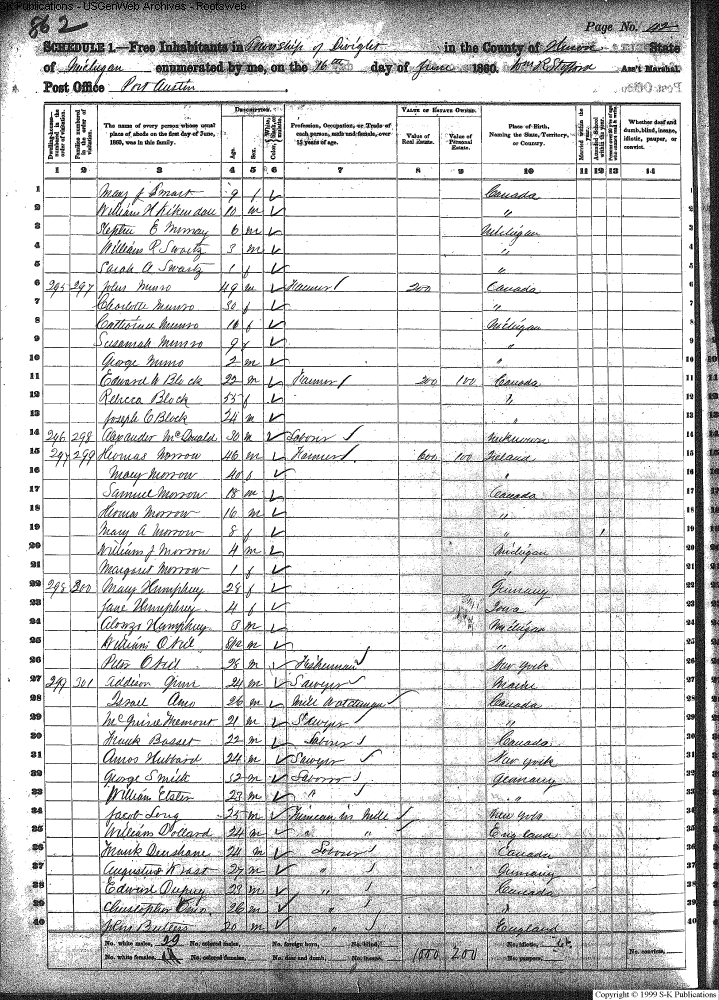 S-K Publications - USGenWeb Archives - Rootsweb
862
Page No. 92
SCHEDULE 1.—Free Inhabitants in Township of Dwight in the County of Huron State
of Michigan enumerated by me, on the 16th day of June 1860. Wm R Stafford Ass't Marshal.
Post Office Port Austin
Dwelling-houses—numbered in the order of visitation.
Families numbered in the order of visitation.
The name of every person whose usual place of abode on the first day of June, 1860, was in this family.
DESCRIPTION.
Age.
Sex.
Color,
Profession, Occupation, or Trade of each person, male and female, over 15 years of age.
VALUE OF ESTATE OWNED.
Value of Real Estate.
Value of Personal Estate.
Place of Birth, Naming the State, Territory, or Country.
Married within the year.
Attended School within the year.
Whether deaf and dumb, blind, insane, idiotic, pauper, or convict.
1 2 3 4 5 6 7 8 9 10 11 12 13 14
1 Mary J Smart 9 f ✓ Canada 1
2 William H 10 m ✓ " 2
3 Stephen E Murray 6 m ✓ Michigan 3
4 William R Swartz 3 m ✓ " 4
5 Sarah A Swartz 1 f ✓ " 5
6 295 297 John Munro 49 m ✓ Farmer 200 Canada 6
7 Charlotte Munro 30 f ✓ " 7
8 Catharine Munro 16 f ✓ Michigan 8
9 Susannah Munro 9 f ✓ " 9
10 George Munro 2 m ✓ " 10
11 Edward W Block 22 m ✓ Farmer 200 100 Canada 11
12 Rebecca Block 55 f ✓ " 12
13 Joseph C Block 24 m ✓ " 13
14 296 298 Alexander McDonald 30 m ✓ Laborer Unknown 14
15 297 299 Thomas Morrow 46 m ✓ Farmer 600 100 Ireland 15
16 Mary Morrow 40 f ✓ " 16
17 Samuel Morrow 18 m ✓ Canada 17
18 Thomas Morrow 16 m ✓ " 18
19 Mary A Morrow 8 f ✓ " 1 19
20 William J Morrow 4 m ✓ Michigan 20
21 Margaret Morrow 1 f ✓ " 21
22 298 300 Mary Humphrey 28 f ✓ Germany 22
23 Jane Humphrey 4 f ✓ Iowa 23
24 Alonzo Humphrey 3 m ✓ Michigan 24
25 William O'Neil m ✓ " 25
26 Peter O'Neil 28 m ✓ Fisherman New York 26
27 299 301 Addison Ginn 24 m ✓ Sawyer Maine 27
28 Israel Amo 26 m ✓ Mill Watchman Canada 28
29 McGuire 21 m ✓ Sawyer " 29
30 Frank Basset 22 m ✓ Laborer Canada 30
31 Amos Hubbard 24 m ✓ Sawyer New York 31
32 George Smith 52 m ✓ Laborer Germany 32
33 William 23 m ✓ " " 33
34 Jacob Long 25 m ✓ Fireman in Mill New York 34
35 William Dollard 24 m ✓ " " England 35
36 Frank 24 m ✓ Laborer Canada 36
37 Augustus Wrast 27 m ✓ " Germany 37
38 Edward Dupuy 23 m ✓ " Canada 38
39 Christopher 26 m ✓ " " 39
40 John Butters 20 m ✓ " England 40
No. white males, 29 No. colored males, No. foreign born, No. blind, 1000 200 No. idiotic,
No. white females, 11 No. colored females, No. deaf and dumb, No. insane, No. paupers, No. convicts,
Copyright © 1999 S-K Publications